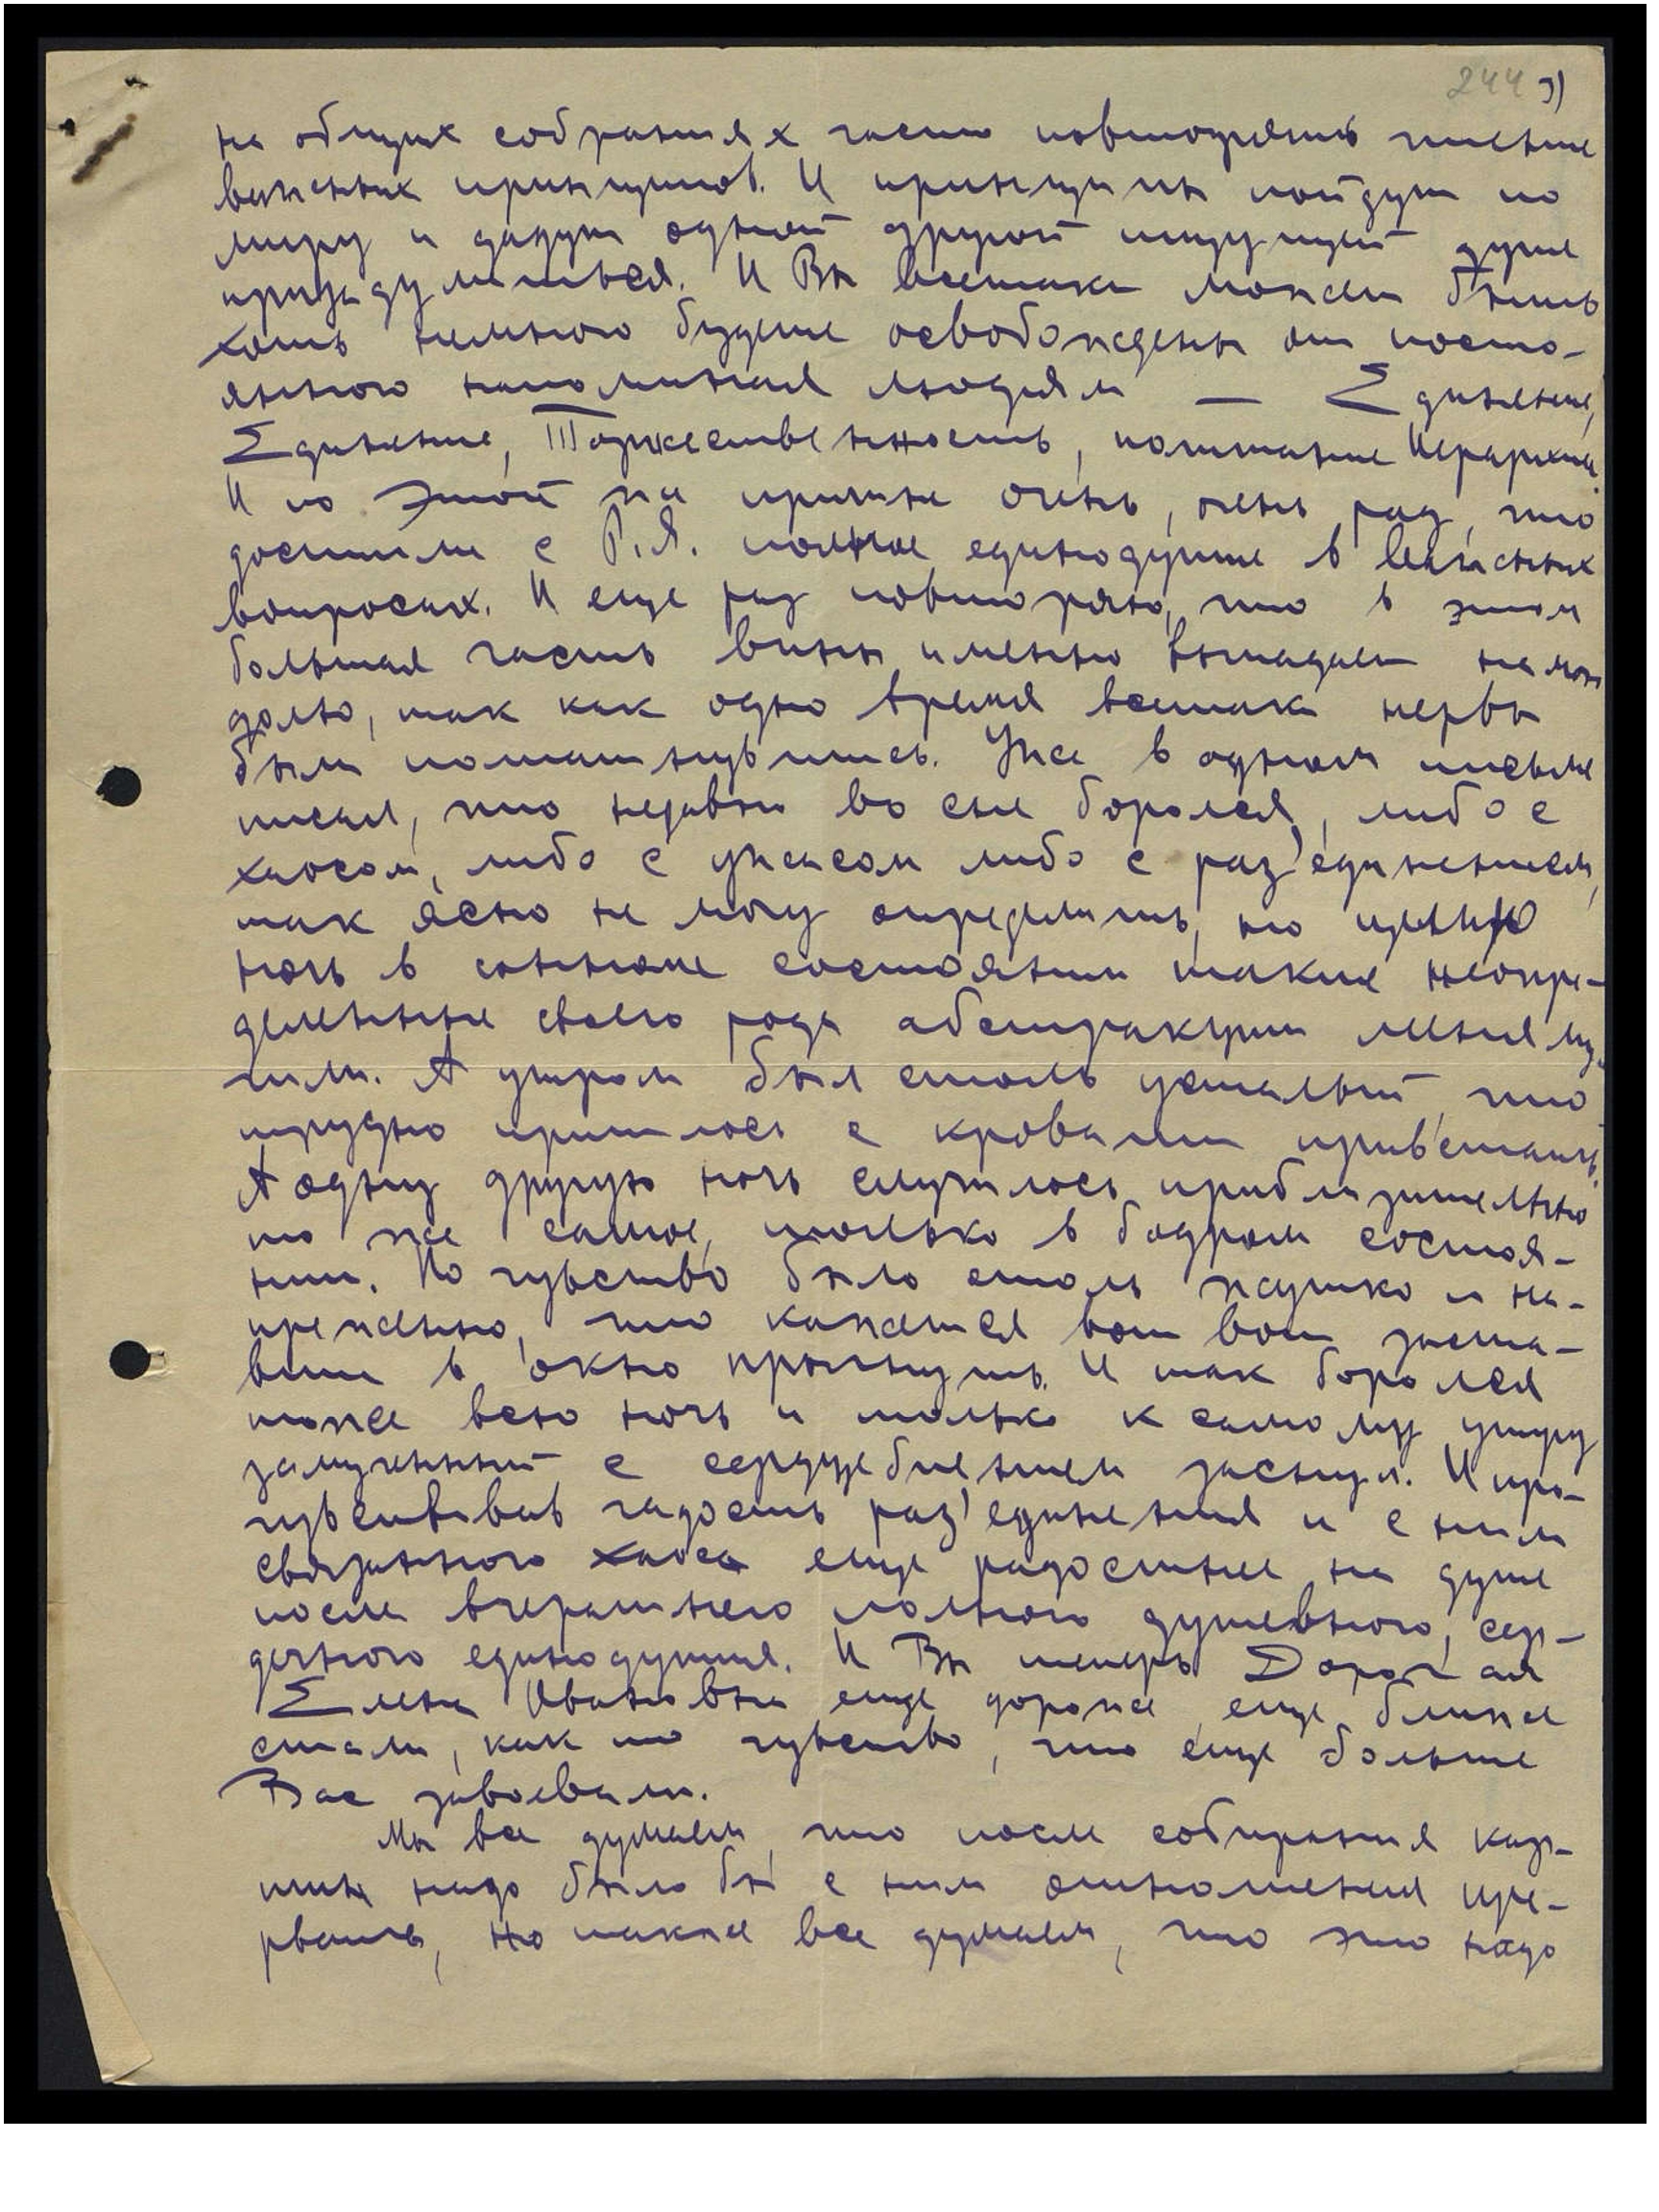 244 3)
на общих собраниях часто повторять чтение
важнных принципов. И принципы пойдут по
миру и дадут одной другой ищущей душе
призадуматься. И Вы всетаки может быть
хоть немного будете освобождены от посто-
янного напоминая людям — Единение,
Единение, Торжественность, почитание Иерархии.
И по этой же причине очень, очень рад, что
достигли с Р.Я. полное единодушие в важнных
вопросах. И еще раз повторяю, что в этом
большая часть вины именно выпадает на мою
долю, так как одно время всетаки нервы
были пошатнувшись. Уже в одном письме
писал, что недавно во сне боролся, либо с
хаосом, либо с ужасом либо с раз'единением,
так ясно не могу определить, но целую
ночь в сонном состоянии такие неопре-
деленные своего рода абстракции меня му-
чили. А утром был столь усталый, что
трудно пришлось с кровати привстать.
А одну другую ночь случилось приблизительно
то же самое, только в бодром состоя-
нии. Но чувство было столь жутко и на-
пряженно, что кажется вот вот заста-
вит в окно прыгнуть. И так боролся
тоже всю ночь и только к самому утру
замученный с сердцебиением заснул. И про-
чувствовав гадость раз'единения и с ним
связанного хаоса еще радостнее на душе
после вчерашнего полного душевного, сер-
дечного единодушия. И Вы теперь Дорогая
Елена Ивановна еще дороже, еще ближе
стали, как то чувство, что еще больше
Вас завоевали.
Мы все думаем, что после собирания кар-
тин надо было бы с ним отношения пре-
рвать, но также все думаем, что это надо